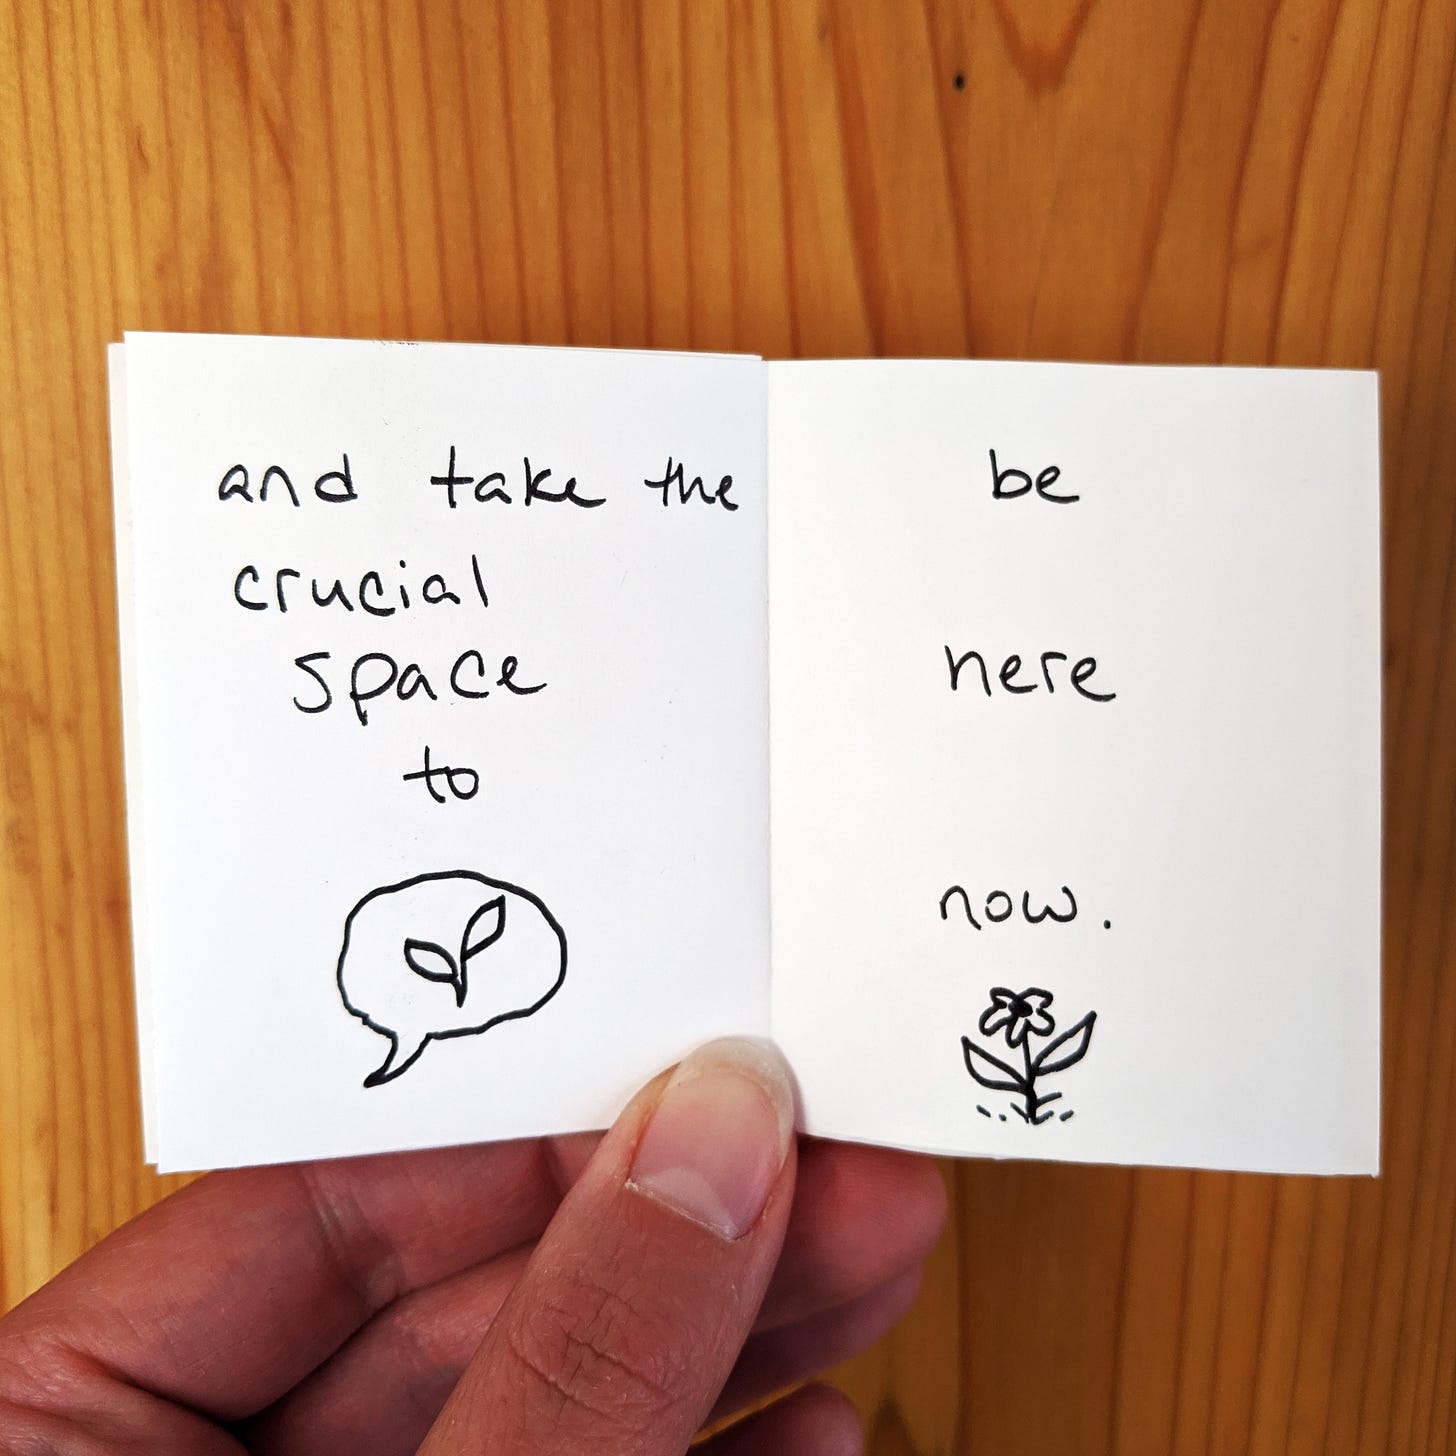 and take the
crucial
space
to
be
here
now.